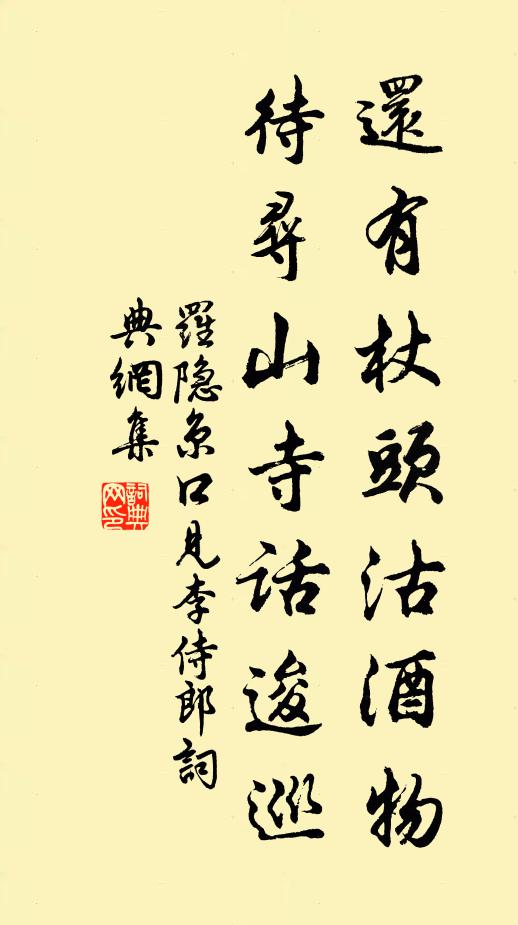 還有杖頭沽酒物
待尋山寺話逡巡
羅隐京口見李侍郎詞
典網集
詞典网印